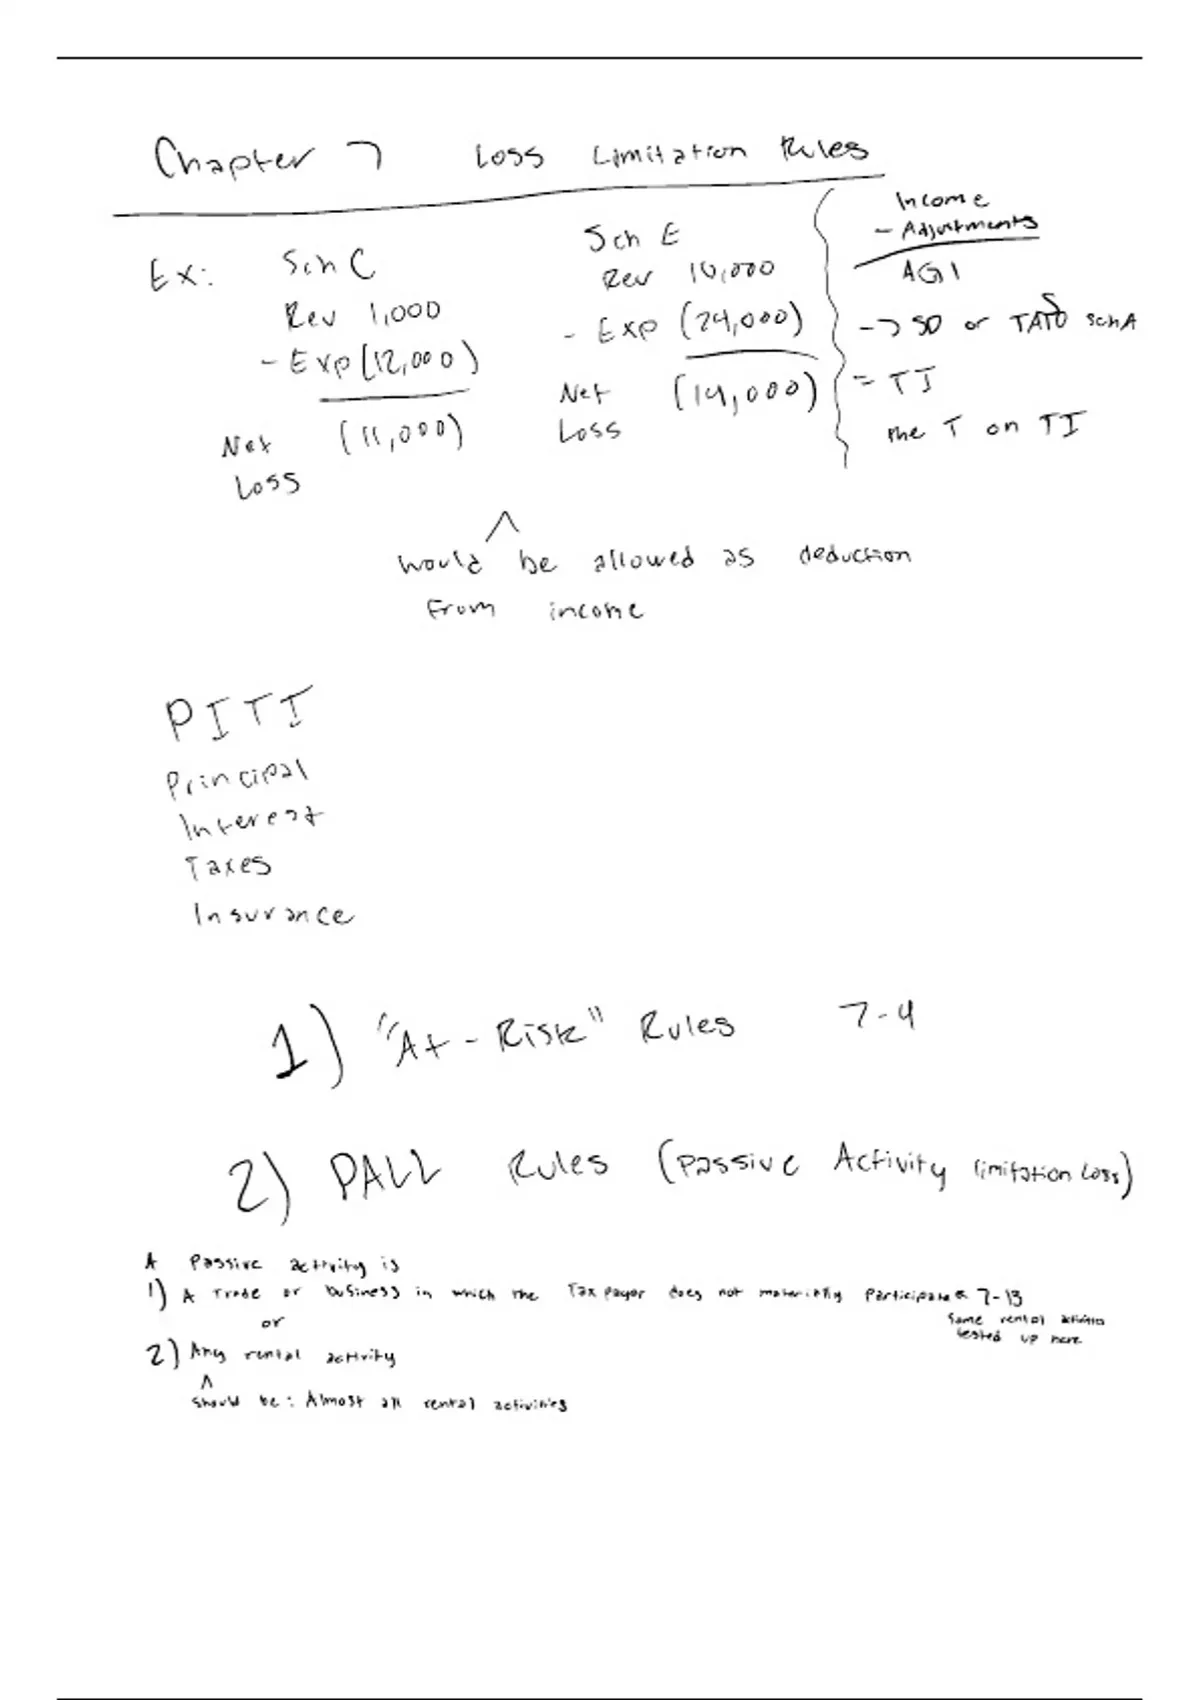 Chapter 7 Loss Limitation Rules
Ex:
Sch C
Rev 1,000
- Exp (12,000)
Net (11,000)
Loss
Sch E
Rev 10,000
- Exp (24,000)
Net (14,000)
Loss
Income
- Adjustments
AGI
-> SD or TATD Sch A
S
= TI
the T on TI
^
would be allowed as deduction
From income
PITI
Principal
Interest
Taxes
Insurance
1) "At-Risk" Rules 7-4
2) PALL Rules (Passive Activity limitation Loss)
A Passive activity is
1) A Trade or business in which the Taxpayer does not materially participate 7-13
or
Some rental activities
tested up here
2) Any rental activity
^
should be: Almost all rental activities